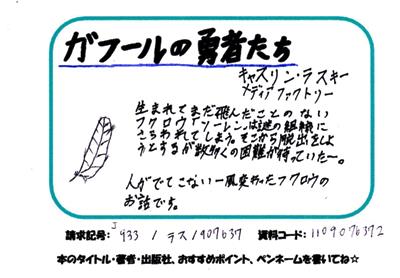 ガフールの勇者たち
キャスリン・ラスキー
メディアファクトリー
生まれてまだ飛んだことのない
フクロウ「ソーレン」は謎の組織に
さらわれてしまう。そこから脱出をしよ
うとするが数多くの困難が待っていた〜。
人がでてこない一風変わったフクロウの
お話です。
請求記号：J933 / ラス / 407637 資料コード：1109076372
本のタイトル・著者・出版社、おすすめポイント、ペンネームを書いてね☆